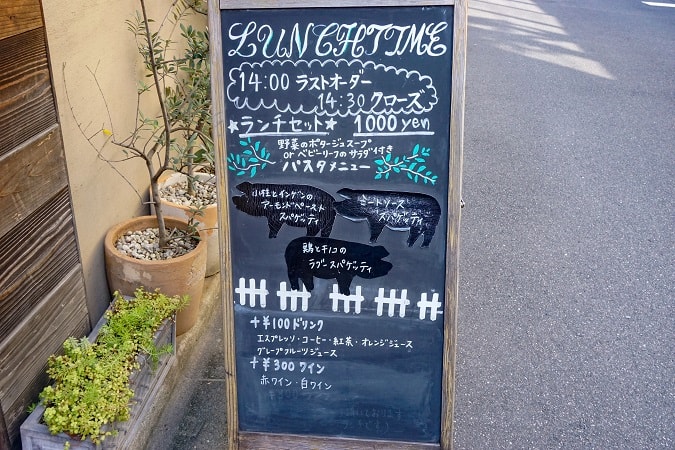 LUNCHTIME
14:00 ラストオーダー
14:30 クローズ
★ランチセット★ 1000yen
野菜のポタージュスープ
or ベビーリーフのサラダ付き
パスタメニュー
小柱とインゲンの
アーモンドペースト
スパゲッティ
ミートソース
スパゲッティ
鶏とキノコの
ラグースパゲッティ
+¥100ドリンク
エスプレッソ・コーヒー・紅茶・オレンジジュース
グレープフルーツジュース
+¥300ワイン
赤ワイン・白ワイン